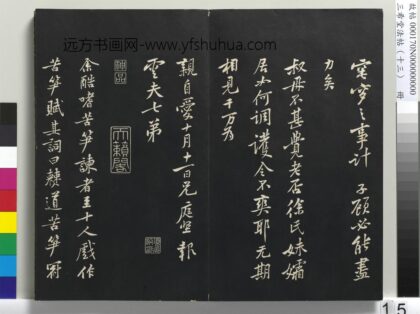 窀穸之事计子顾必能盡
力矣
叔母不甚覺老否徐氏妹孀
居如何調護令不爽耶無期
相見千万為
親自愛十月十一日兄庭堅報
雲夫七弟
余酷嗜苦笋諫者至十人戲作
苦笋賦其詞曰僰道苦笋冠
天籁閣
远方书画网-www.yfshuhua.com
故帖 000170N000000000
三希堂法帖(十三) 冊
15